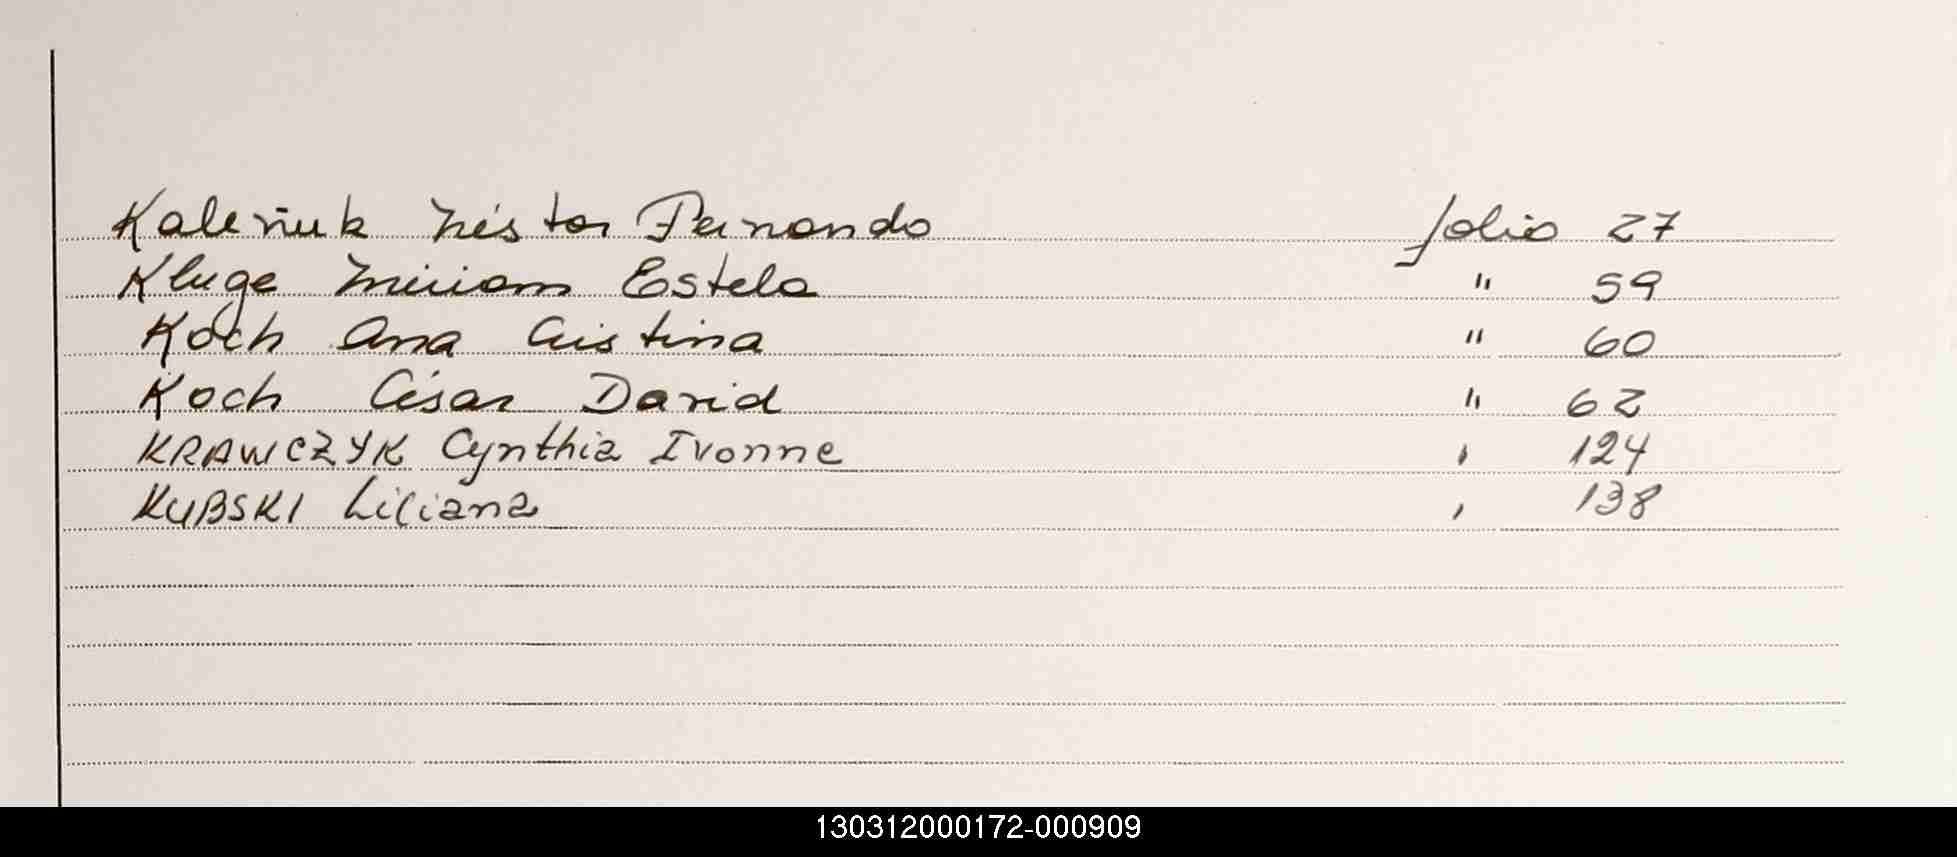 Kaleniuk Néstor Fernando folio 27
Kluge Miriam Estela " 59
Koch Ana Cristina " 60
Koch César David " 62
KRAWCZYK Cynthia Ivonne , 124
KUBSKI Liliana , 138
130312000172-000909